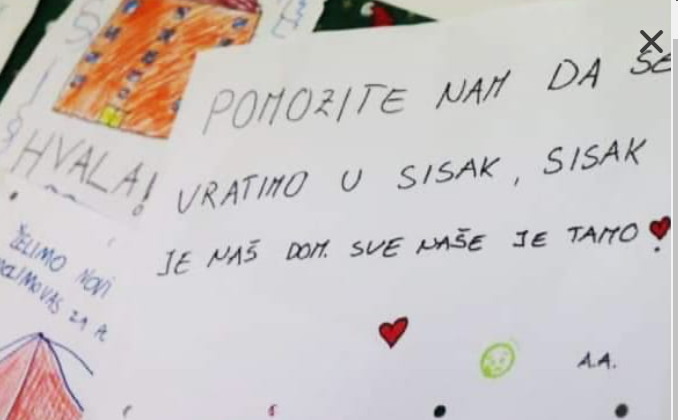 HVALA!
POMOZITE NAM DA SE
VRATIMO U SISAK, SISAK
JE NAŠ DOM. SVE NAŠE JE TAMO
A.A.
ŽELIMO NOVI
MOLIMO VAS ZA